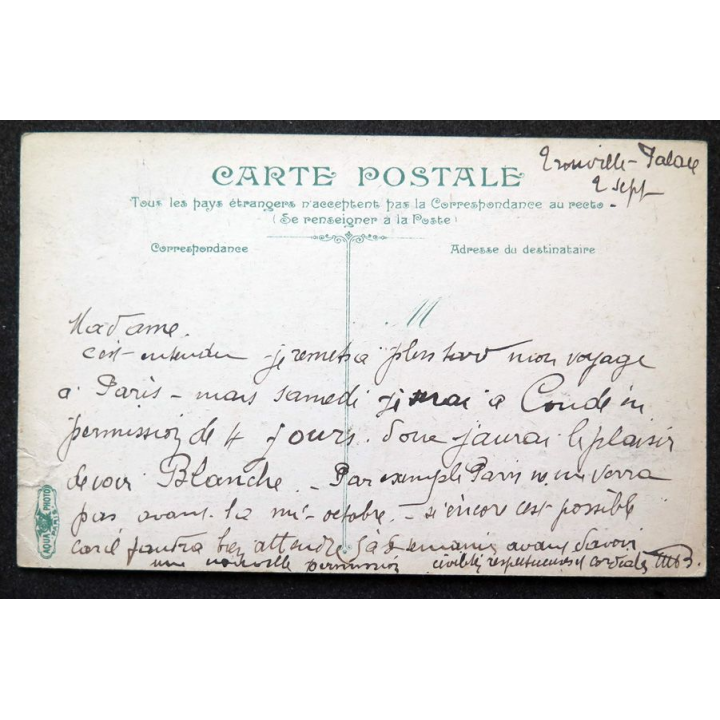 Trouville-Palace
2 sept
CARTE POSTALE
Tous les pays étrangers n'acceptent pas la Correspondance au recto
(Se renseigner à la Poste)
Correspondance
Adresse du destinataire
M
Madame.
c'est entendu je remets à plus tard mon voyage
à Paris - mais samedi j'irai à Condé en
permission de 4 jours. donc j'aurai le plaisir
de voir Blanche. - Par exemple Paris ne me verra
pas avant la mi-octobre. - si encor c'est possible
car il faudra bien attendre 5 à 6 semaines avant d'avoir
une nouvelle permission
respectueuses et cordiales MB.
AQUA PHOTO
PARIS